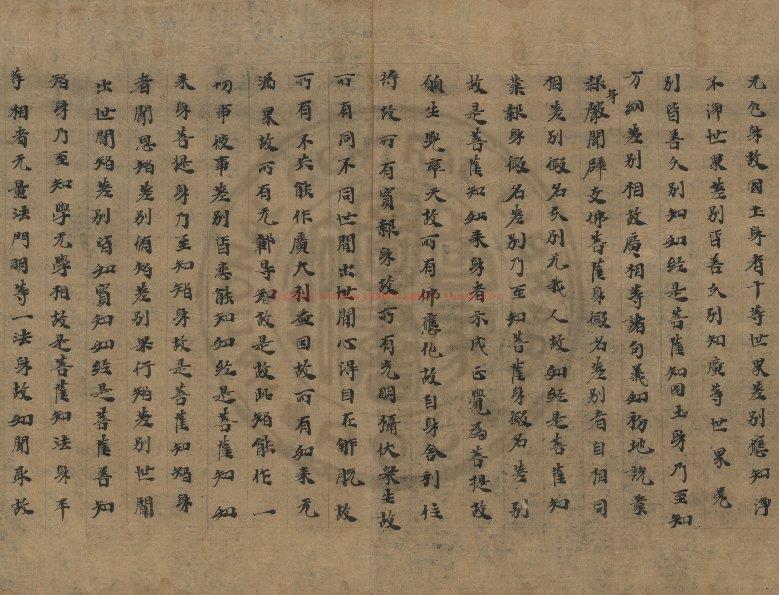 无乞身故国土身者十等世界差别應知淨
不淨世界差别皆善分别知廣等世界竟
别皆善分别知如經是菩薩知国土身乃至知
方網差别相故廣相等諸句義如初地說業
報身聲聞辟支佛菩薩身假名差别者自相同
相差别假名分别无我人故如經是菩薩知
業報身假名差别乃至知菩薩身假名差别
故是菩薩知如来身者示成正覺為菩提故
願生兜率天故所有佛應化故自身舍利住
持故所有實報身故所有光明攝伏衆生故
所有同不同世間出世間心得自在解脫故
所有不共能作廣大利益因故所有如来无
漏界故所有无鄣导知故是故此智能作一
切事彼事差别皆悉能知如經是菩薩知如
来身菩提身乃至知智身故是菩薩知智身
者聞思智差别脩智差别果行智差别世間
出世間智差别皆如實知如經是菩薩善知
智身乃至知學无學相故是菩薩知法身平
等相者无量法門明等一法身故如聞取故